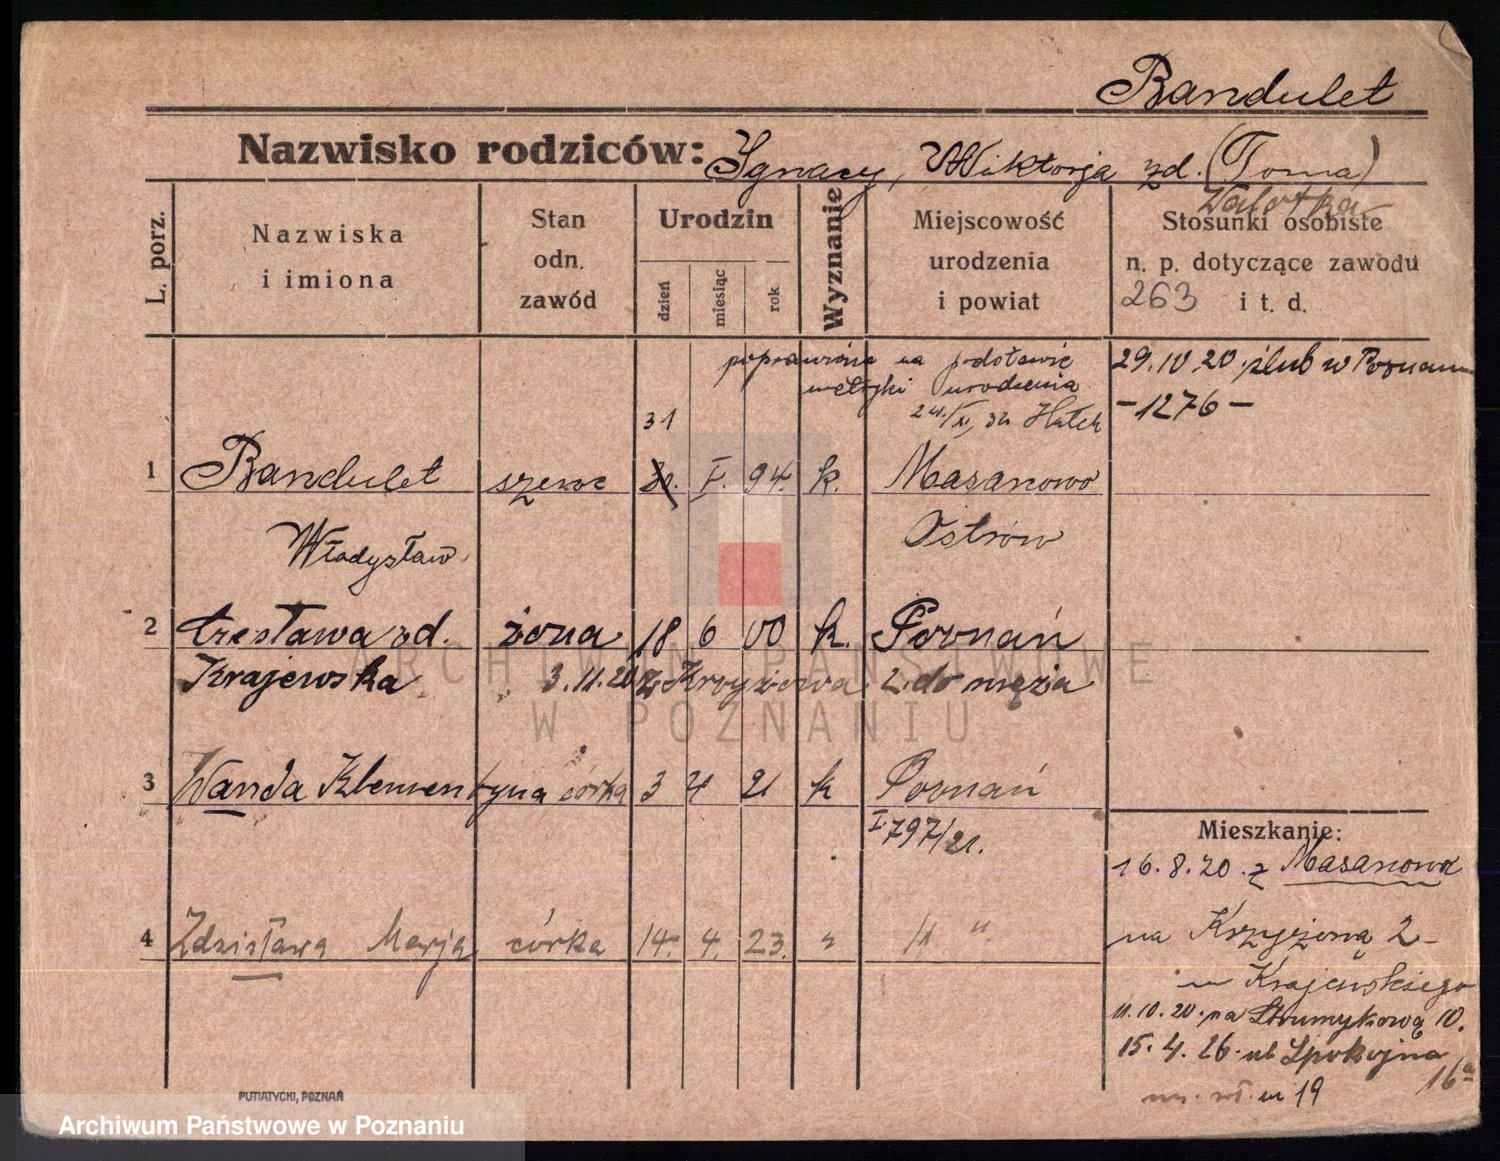 Bandulet
Nazwisko rodziców: Ignacy, Wiktorja zd. (Toma)
Walotka
L. porz.
Nazwiska
i imiona
Stan
odn.
zawód
Urodzin
dzień
miesiąc
rok
Wyznanie
Miejscowość
urodzenia
i powiat
Stosunki osobiste
n. p. dotyczące zawodu
263 i t. d.
poprawiono na podstawie
metryki urodzenia
29.10.20. ślub w Poznaniu
- 1276 -
31
1 Bandulet szewc 30. I. 94. k. Masanowo
Władysław Ostrów
2 Czesława zd. żona 18 6 00 k. Poznań
Krajewska 3.11.20 z Krzyżowa 2. do męża
3 Wanda Klementyna córka 3 4 21 k Poznań
I 797/21.
Mieszkanie:
16.8.20. z Masanowa
4 Zdzisława Marja córka 14. 4. 23. " " "
na Krzyżową 2
u Krajewskiego
11.10.20. na Strumykową 10.
15.4.26. ul Spokojna
16a
m 19
PUTIATYCKI, POZNAŃ
ARCHIWUM PAŃSTWOWE
W POZNANIU
Archiwum Państwowe w Poznaniu